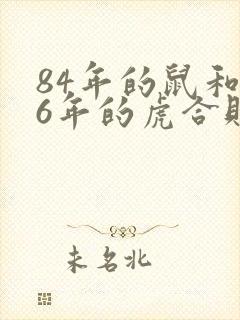 84年的鼠和
6年的虎合财
未名北